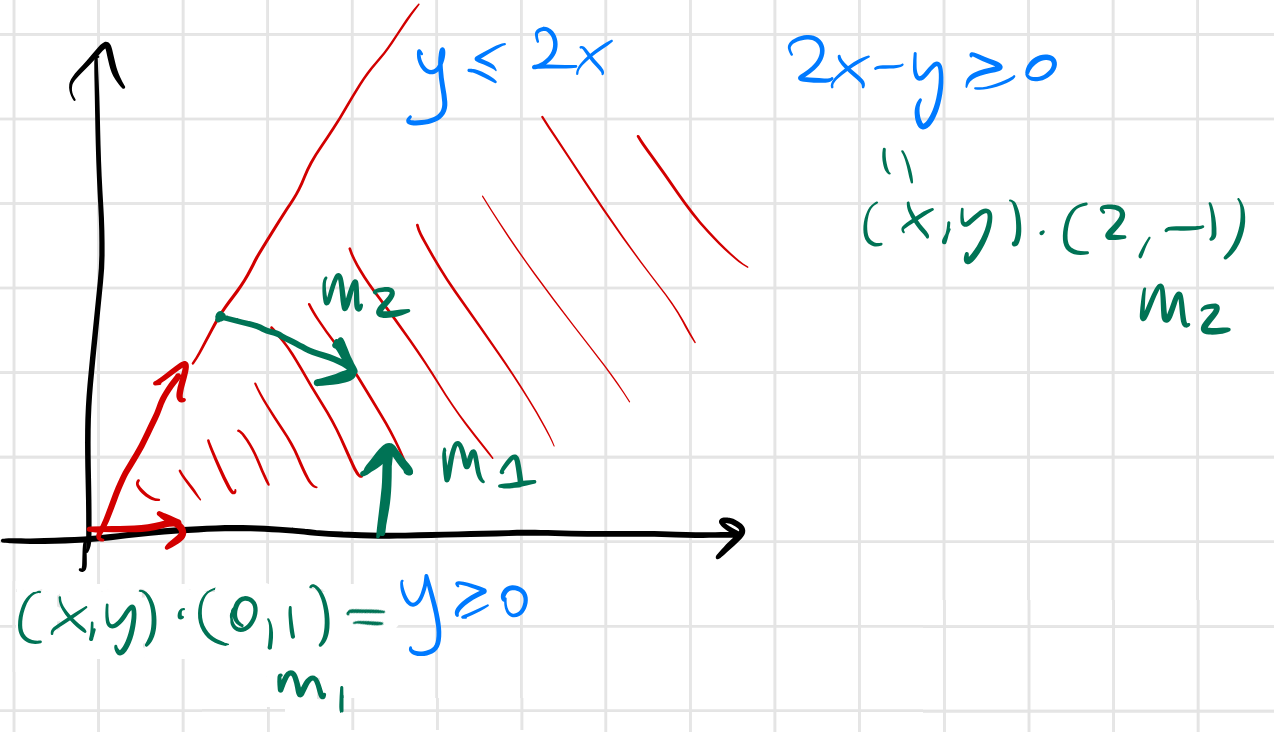 y ≤ 2x
2x-y ≥ 0
"
(x,y)·(2,-1)
m2
m2
m1
(x,y)·(0,1) = y ≥ 0
m1